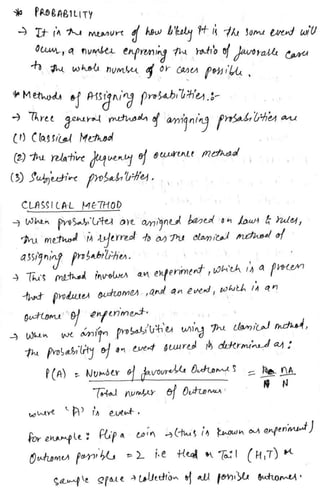 * PROBABILITY
→ It is the measure of how likely it is the some event will
occur, a number expressing the ratio of favorable case
to the whole number of or cases possible.
* Methods of Assigning probabilities:-
→ Three general methods of assigning probabilities are
(1) Classical Method
(2) The relative frequency of occurence method
(3) Subjective probabilities.
CLASSICAL METHOD
→ When probabilites are assigned based on laws & rules,
the method is referred to as the classical method of
assigning probabilities.
→ This method involves an experiment, which is a process
that produces outcomes, and an event, which is an
outcome of experiment.
→ When we assign probabilities using the classical method,
the probability of an event occured is determined as:
P(A) = Number of favourable Outcomes = nA
Total number of Outcomes N
where 'A' is event.
for example: Flip a coin → (this is known as experiment)
Outcomes possible = 2 i.e Head or Tail (H,T) or
sample space → Collection of all possible outcomes.